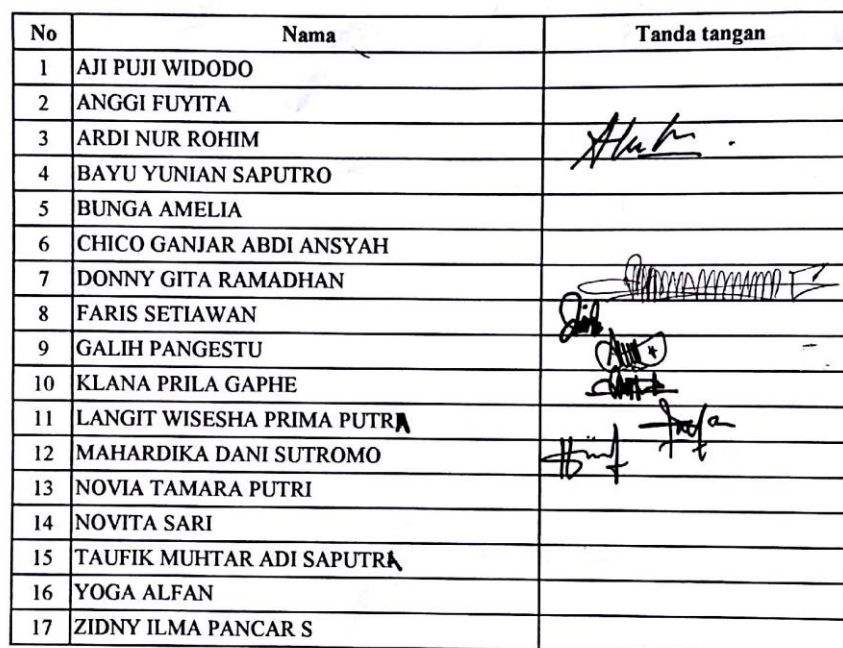 No Nama Tanda tangan
1 AJI PUJI WIDODO
2 ANGGI FUYITA
3 ARDI NUR ROHIM
4 BAYU YUNIAN SAPUTRO
5 BUNGA AMELIA
6 CHICO GANJAR ABDI ANSYAH
7 DONNY GITA RAMADHAN
8 FARIS SETIAWAN
9 GALIH PANGESTU
10 KLANA PRILA GAPHE
11 LANGIT WISESHA PRIMA PUTRA
12 MAHARDIKA DANI SUTROMO
13 NOVIA TAMARA PUTRI
14 NOVITA SARI
15 TAUFIK MUHTAR ADI SAPUTRA
16 YOGA ALFAN
17 ZIDNY ILMA PANCAR S